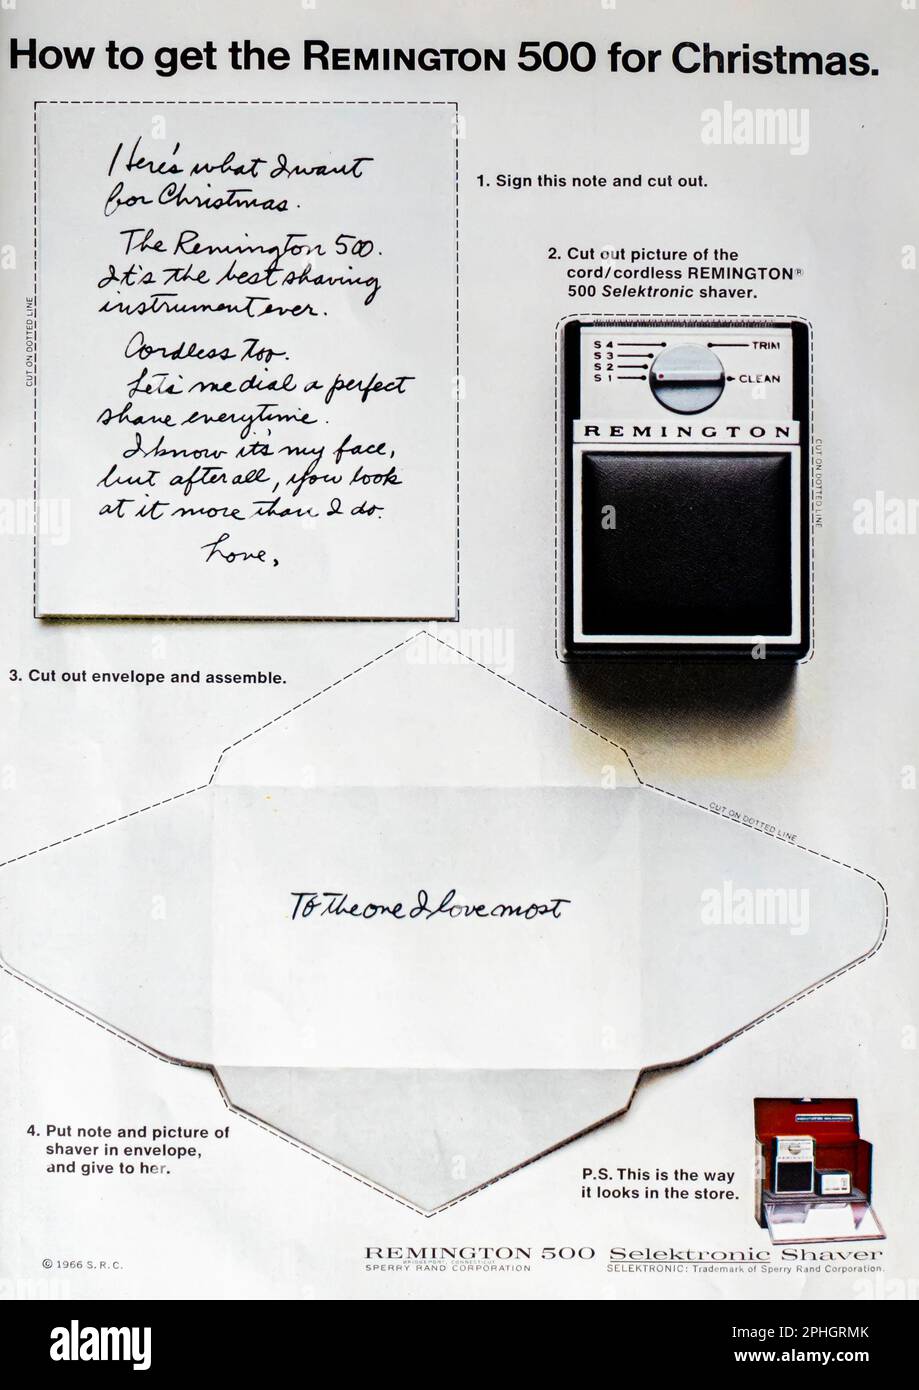 How to get the REMINGTON 500 for Christmas.
Here's what I want
for Christmas.
The Remington 500.
It's the best shaving
instrument ever.
Cordless too.
Lets me dial a perfect
shave everytime.
I know it's my face,
but after all, you look
at it more than I do.
Love,
CUT ON DOTTED LINE
1. Sign this note and cut out.
2. Cut out picture of the
cord/cordless REMINGTON®
500 Selektronic shaver.
S 4
S 3
S 2
S 1
TRIM
CLEAN
REMINGTON
CUT ON DOTTED LINE
3. Cut out envelope and assemble.
CUT ON DOTTED LINE
To the one I love most
4. Put note and picture of
shaver in envelope,
and give to her.
P.S. This is the way
it looks in the store.
© 1966 S. R. C.
REMINGTON 500 Selektronic Shaver
BRIDGEPORT, CONNECTICUT
SPERRY RAND CORPORATION
SELEKTRONIC: Trademark of Sperry Rand Corporation.
alamy
Image ID: 2PHGRMK
www.alamy.com